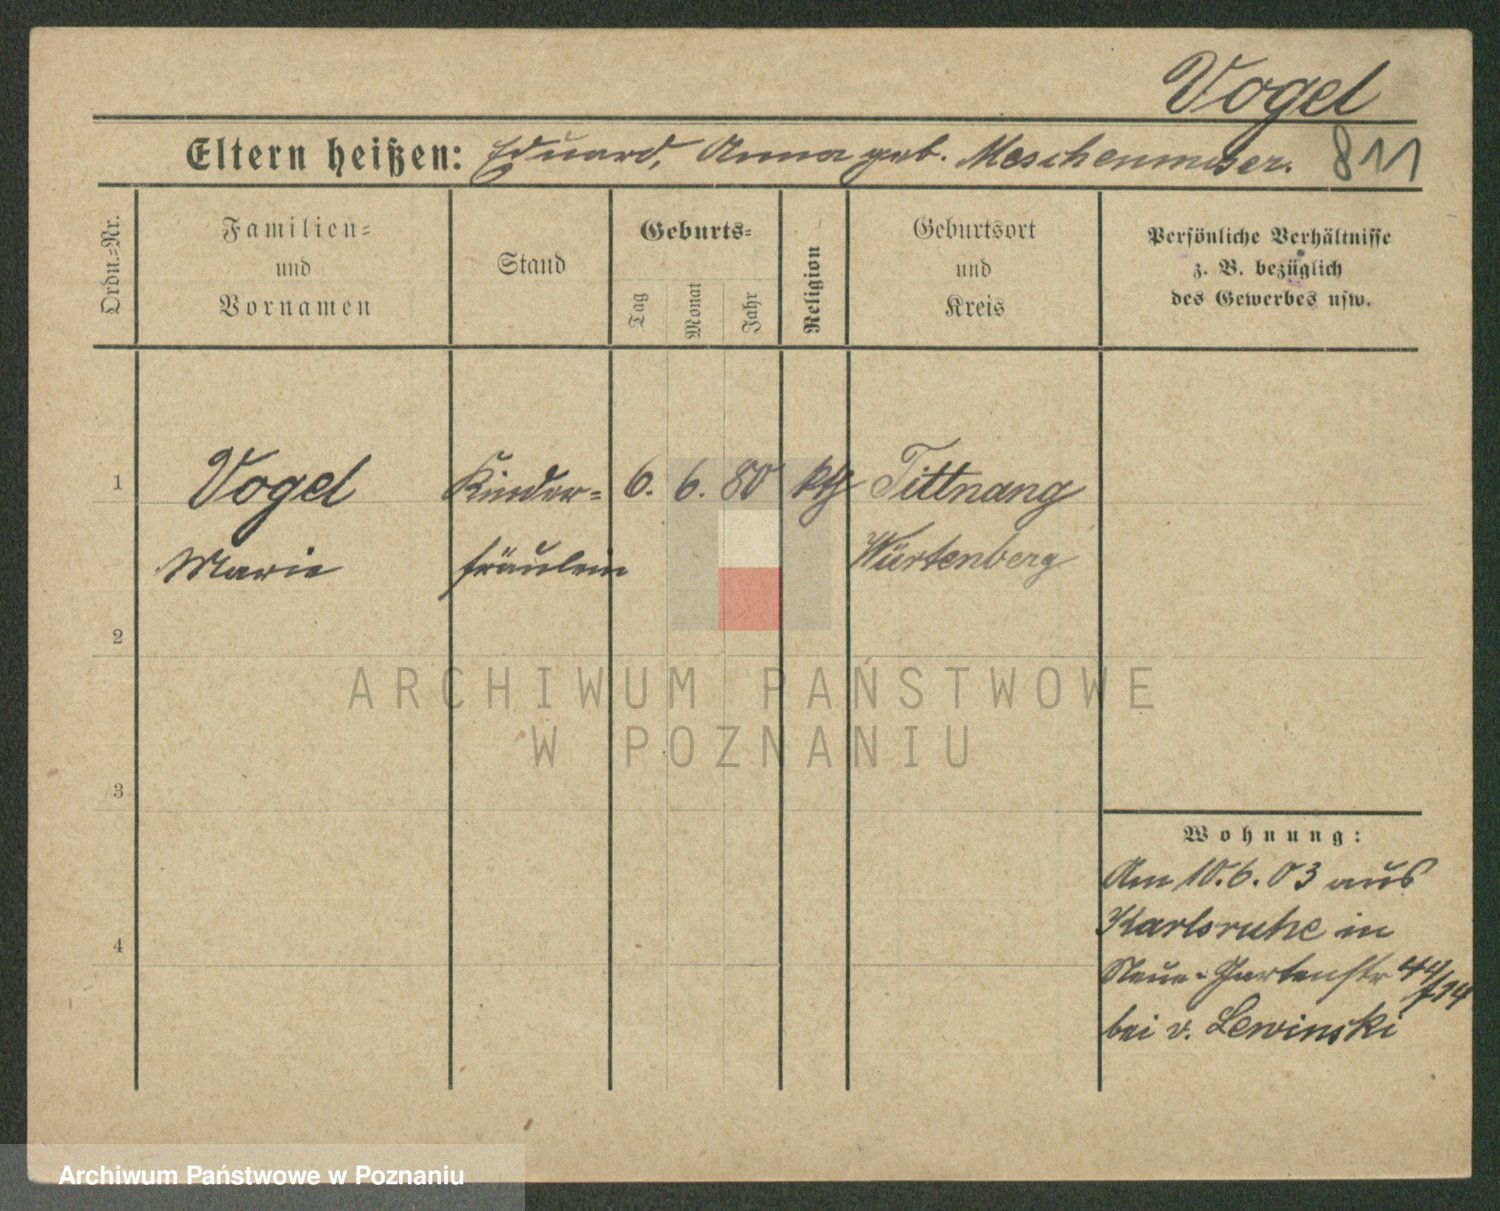 Vogel
Eltern heißen: Eduard, Anna geb. Meschenmoser. 811
Ordn.-Nr.
Familien-
und
Vornamen
Stand
Geburts-
Tag
Monat
Jahr
Religion
Geburtsort
und
Kreis
Persönliche Verhältnisse
z. B. bezüglich
des Gewerbes usw.
1 Vogel Kinder- 6. 6. 80 kth Tittnang
Marie fräulein Würtenberg
2
ARCHIWUM PAŃSTWOWE
W POZNANIU
3
Wohnung:
Am 10.6.03 aus
Karlsruhe in
4
Neue-Gartenstr 44
bei v. Lewinski
Archiwum Państwowe w Poznaniu